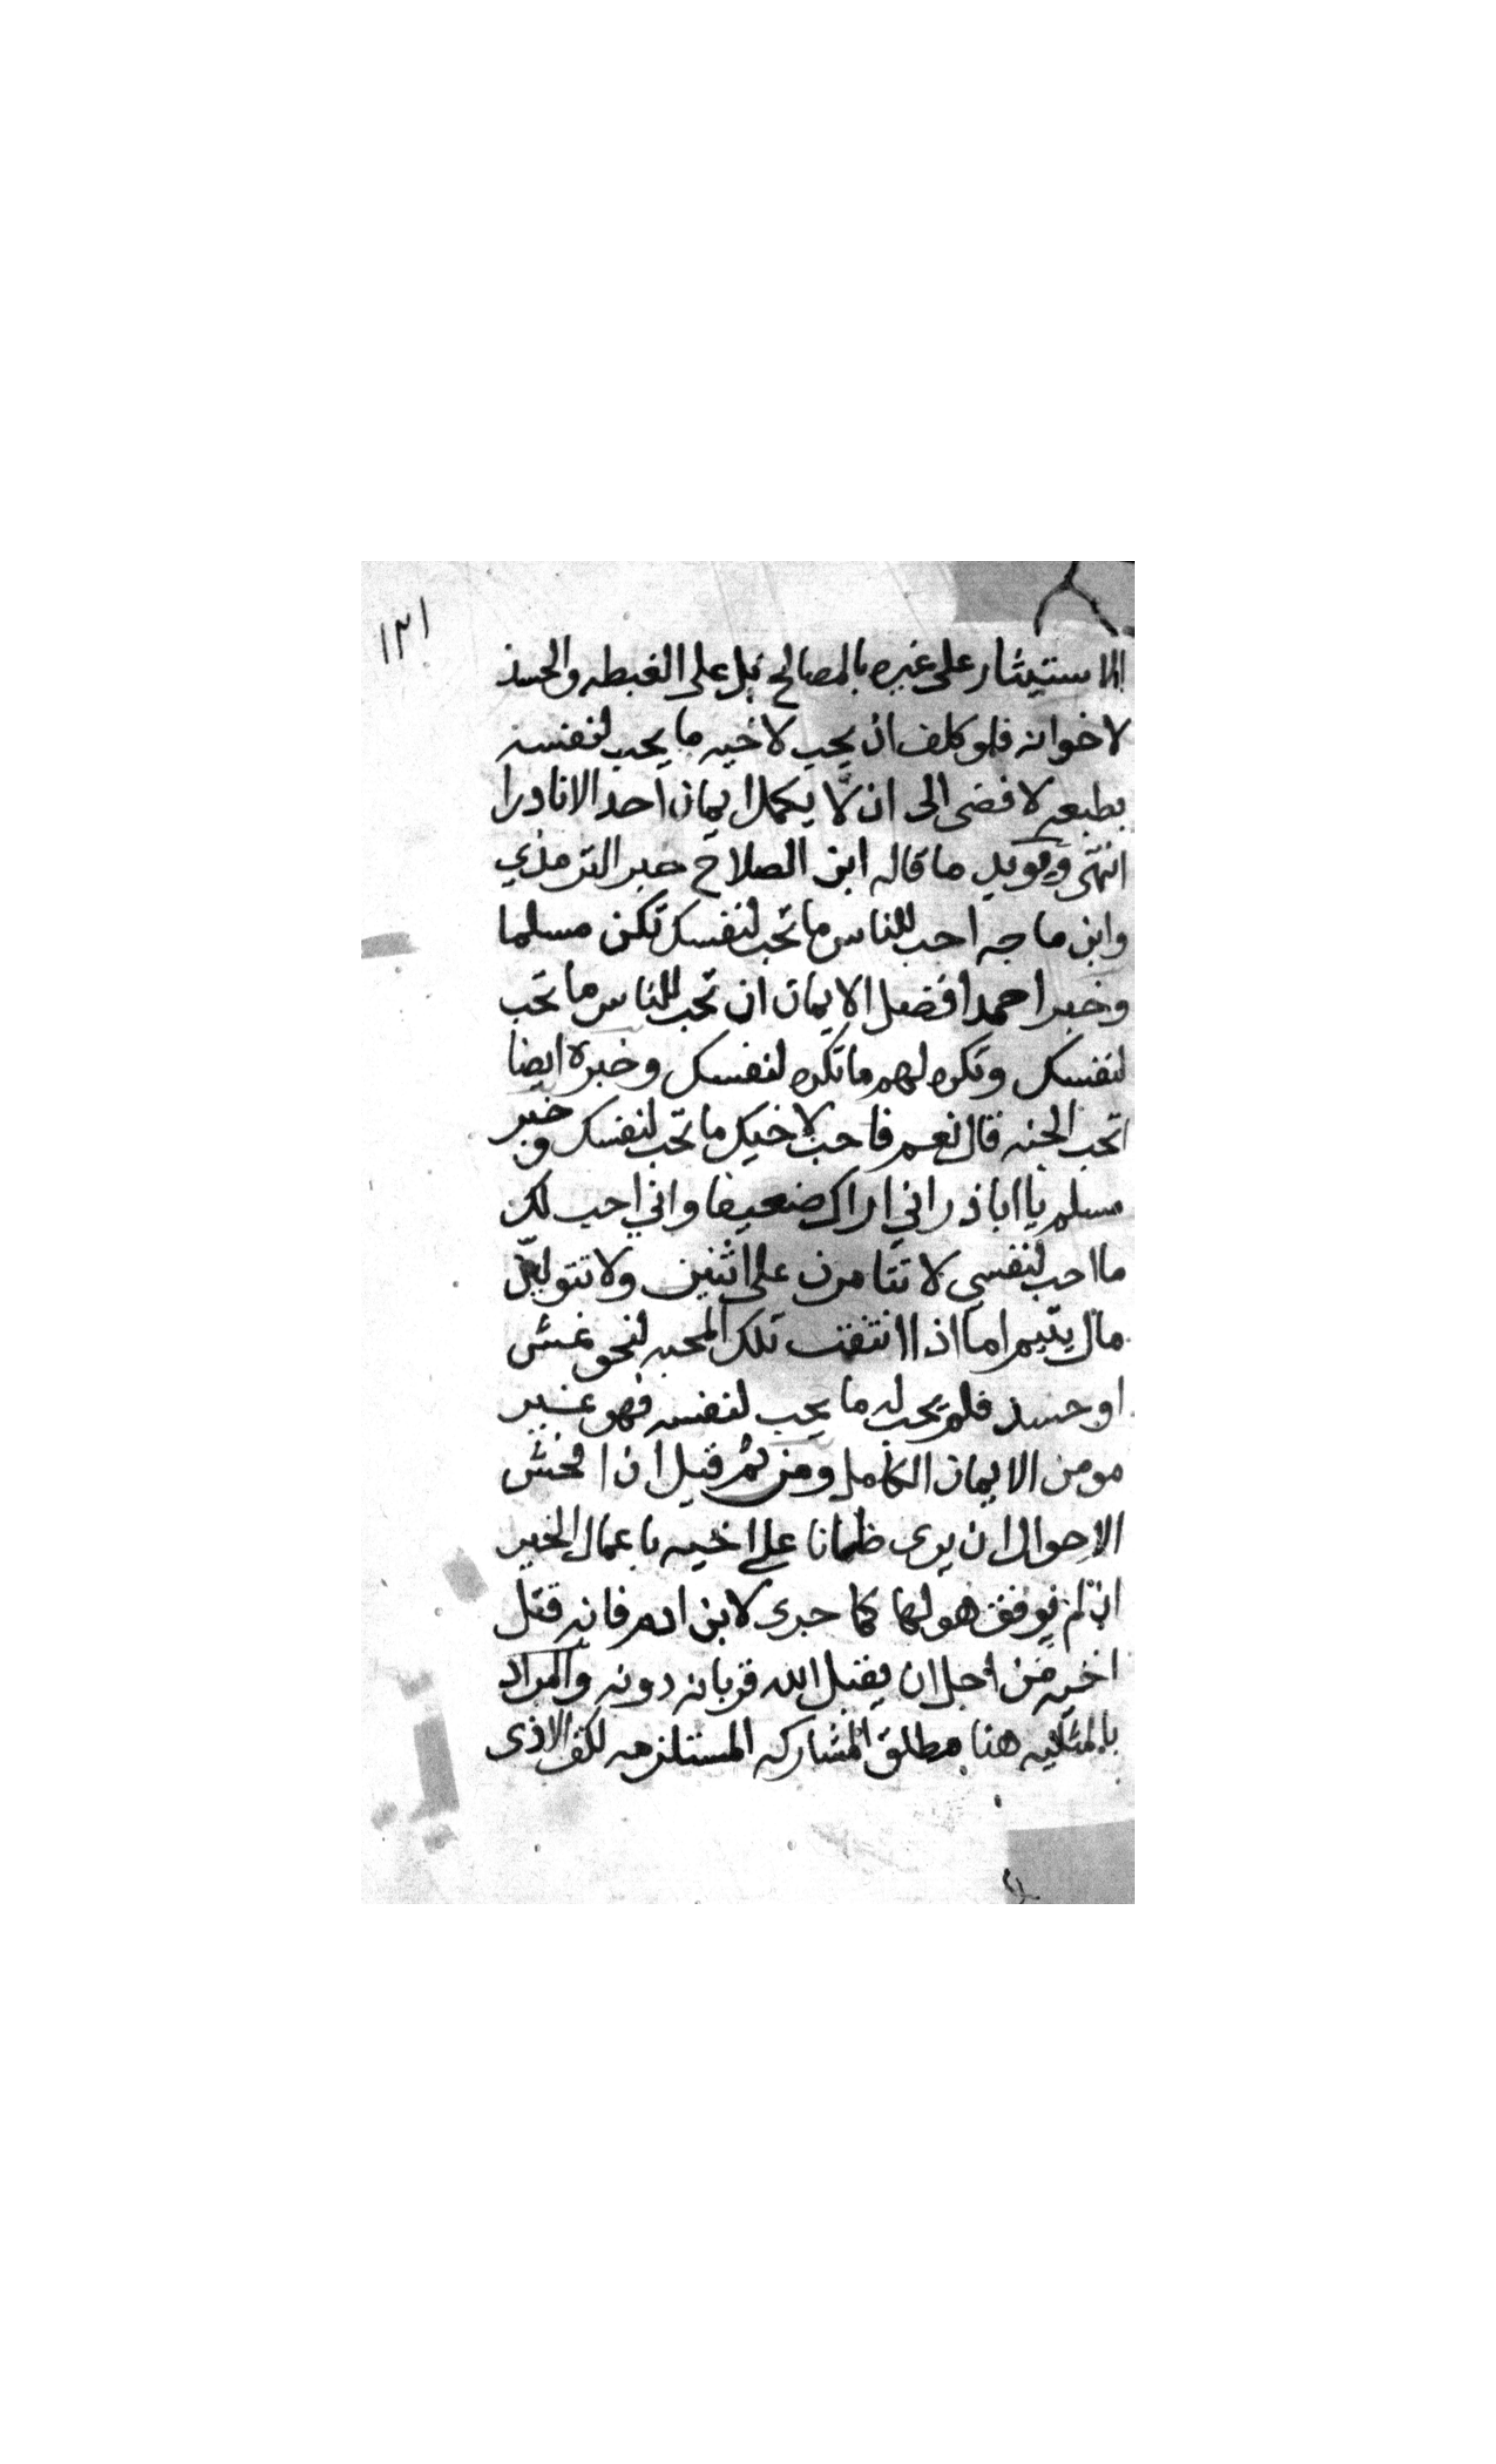 ١٣١
الاستيثار على غيره بالمصالح بل على الغبطه والحسد
لاخوانه فلو كلف ان يحب لاخيه ما يحب لنفسه
بطبعه لافضى الى ان لا يكمل ايمان احد الا نادرا
انتهى ويويد ما قاله ابن الصلاح خبر الترمذي
وابن ماجه احب للناس ما تحب لنفسك تكن مسلما
وخبر احمد افضل الايمان ان تحب للناس ما تحب
لنفسك وتكره لهم ما تكره لنفسك وخبره ايضا
اتحب الجنه قال نعم فاحب لاخيك ما تحب لنفسك وخبر
مسلم يا ابا ذر اني اراك ضعيفا واني احب لك
ما احب لنفسي لا تتامرن على اثنين ولا تتولين
مال يتيم اما اذا انتفت تلك المحبه لنحو غش
او حسد فلم يحب له ما يحب لنفسه فهو غير
مومن الايمان الكامل ومن ثم قيل ان افحش
الاحوال ان يرى ظمانا على اخيه باعمال الخير
ان لم يوفق هو لها كما جرى لابن ادم فانه قتل
اخيه من اجل ان يقبل الله قربانه دونه والمراد
بالمثليه هنا مطلق المشاركه المستلزمه لكف الاذى